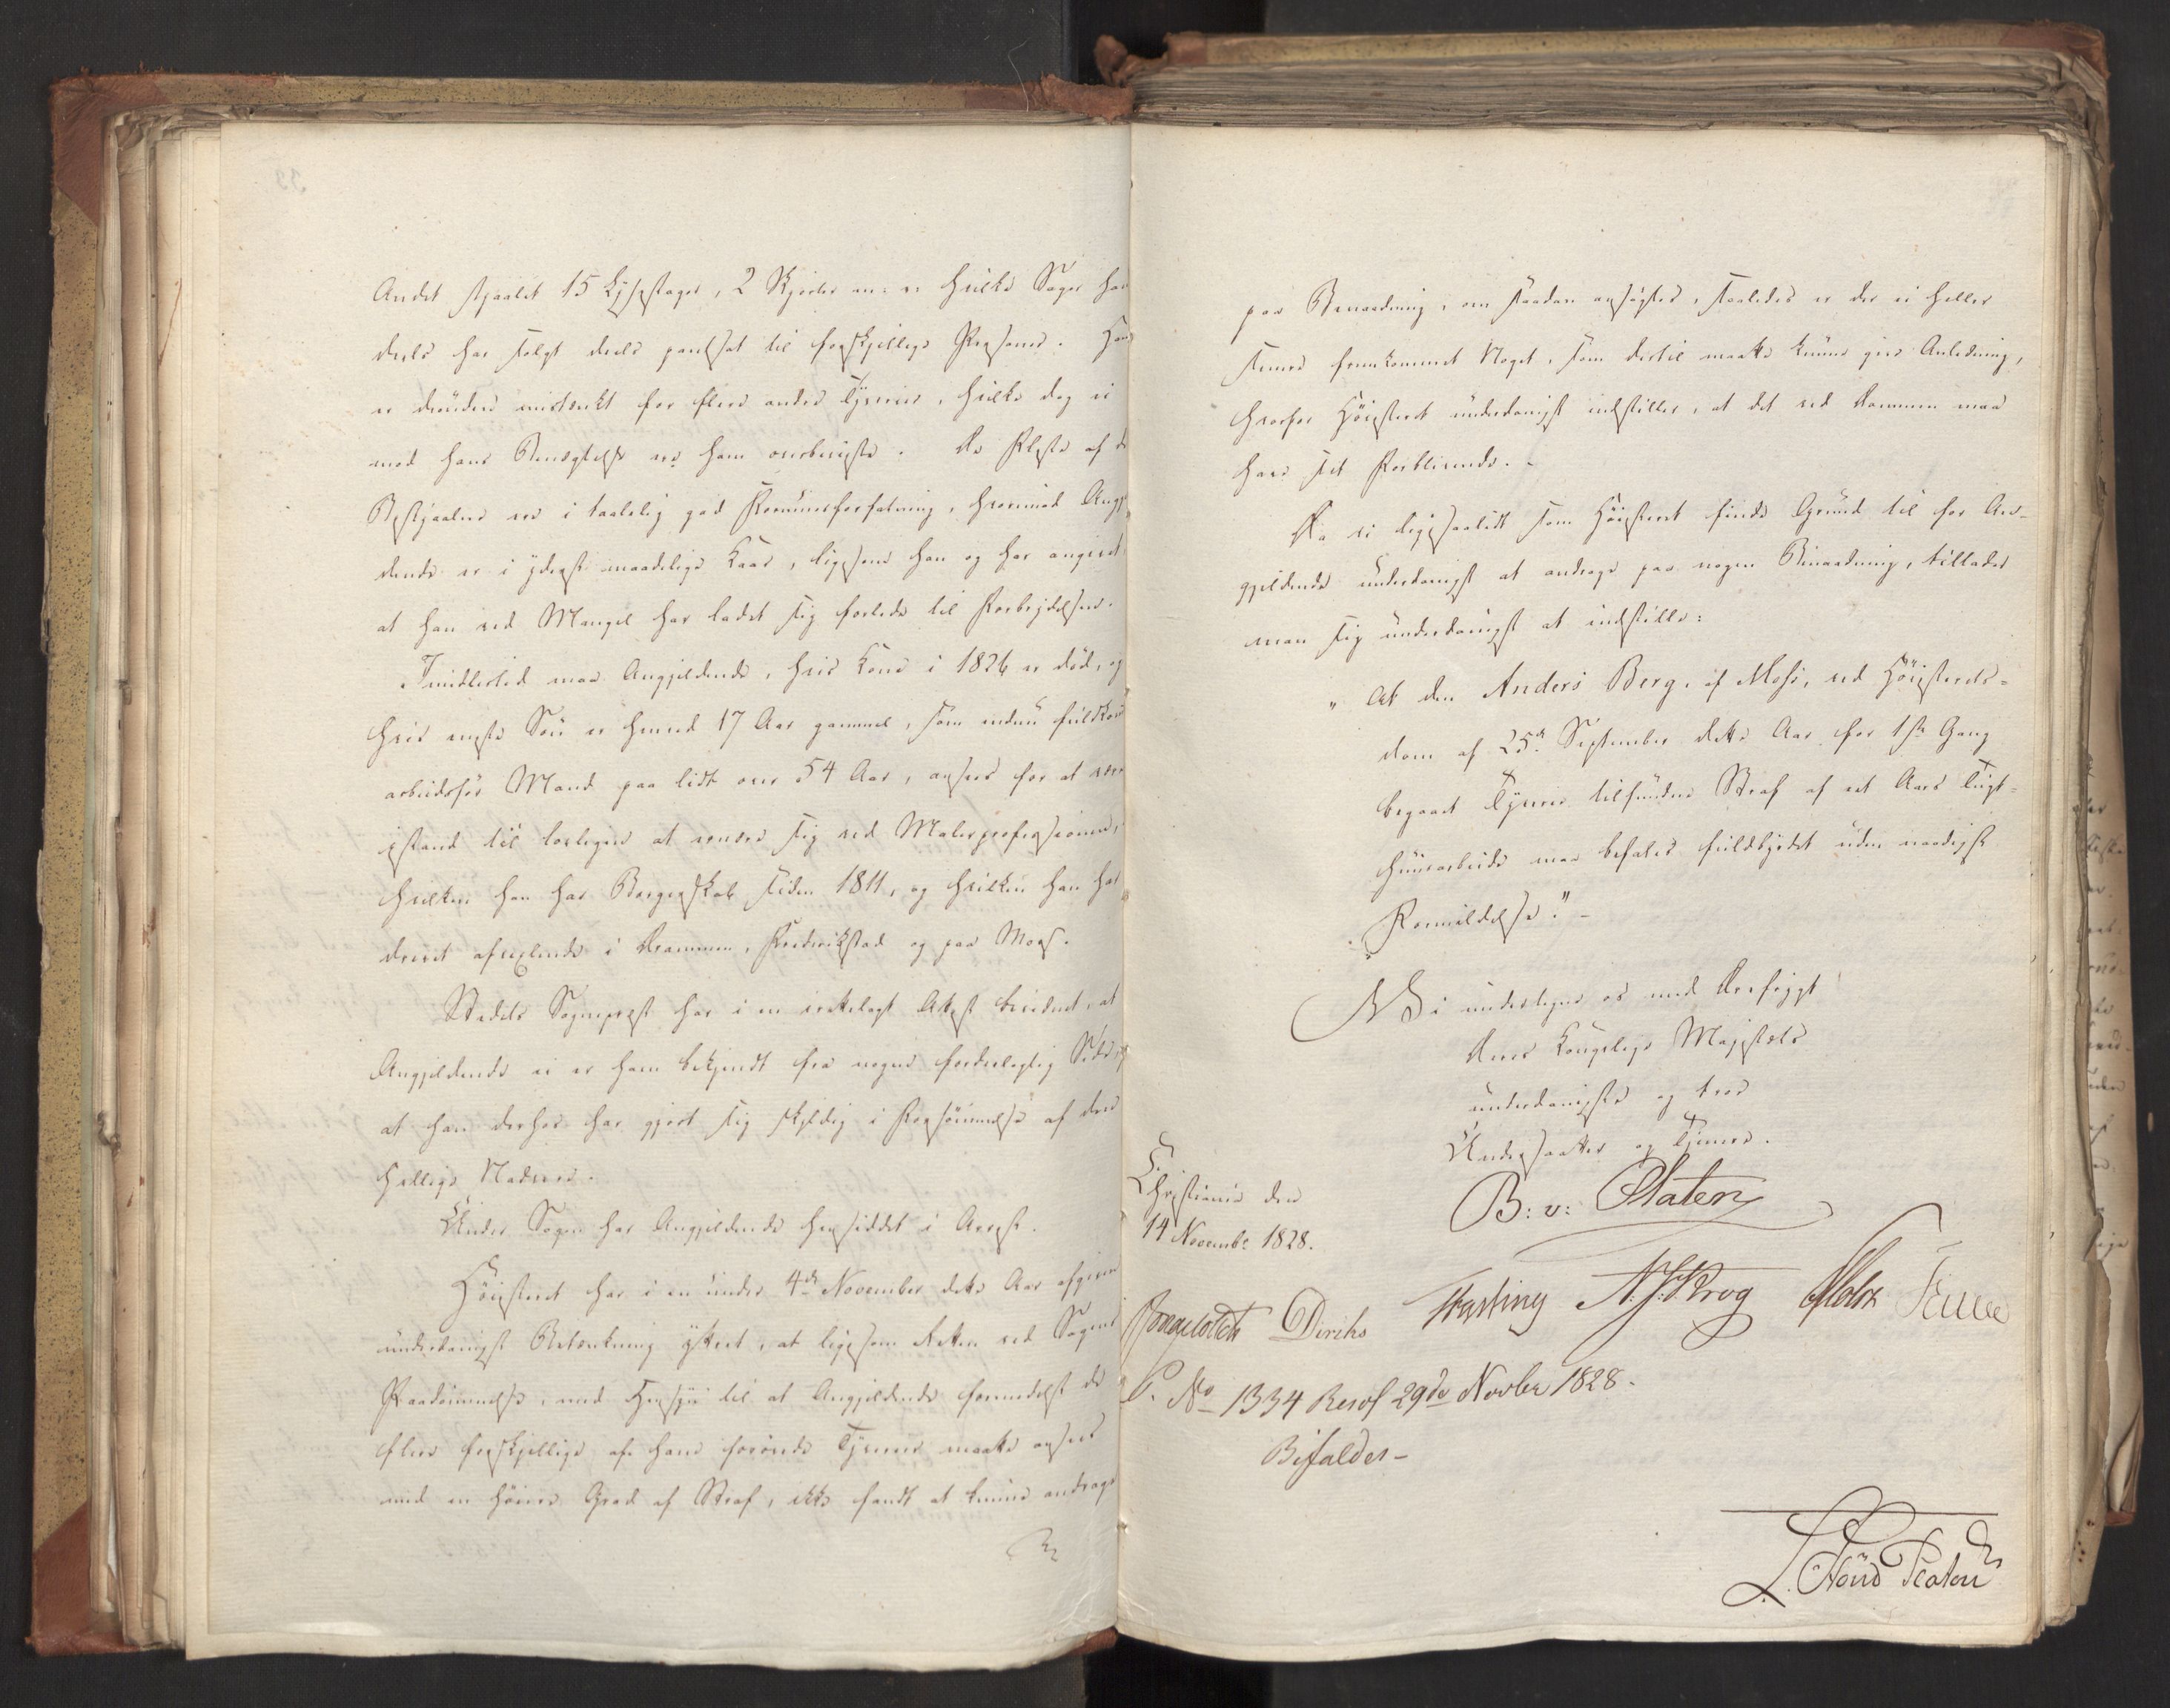 Andet stjaalet 15 Lysestager, 2 Skjorter m: v: hvilke Sager han
deels har solgt deels pantsat til forskjellige Personer. Han
er desuden mistænkt for flere andre Tyverier, hvilke dog ei
mod hans Benægtelse ere ham overbeviste. De Fleste af de
Bestjaalne ere i taalelig god Formuesforfatning, hvorimod Angjel-
dende er i yderst maadelige Kaar, ligesom han og har angivet,
at han ved Mangel har ladet sig forlede til Forbrydelsen.
Imidlertid maa Angjeldende, hvis Kone i 1826 er død, og
hvis yngste Søn er henved 17 Aar gammel, som endnu fuldkom
arbeidsfør Mand paa lidt over 54 Aar, ansees for at være
istand til lovligen at ernære sig ved Malerprofessionen,
hvilken han har Borgerskab siden 1811, og hvilken han har
drevet afvexlende i Drammen, Frederikstad og paa Moss.
Stedets Sognepræst har i en irettelagt Attest bevidnet, at
Angjeldende ei er ham bekjendt fra nogen fordeelagtig Side, og
at han derhos har gjort sig skyldig i Forsømmelse af den
hellige Nadvere.
Under Sagen har Angjeldende hensiddet i Arrest.
Høiesteret har i en under 4de November dette Aar afgiven
underdanigst Betænkning yttret, at ligesom Retten ved Sagens
Paadømmelse, med Hensyn til at Angjeldende formedelst de
flere forskjellige af ham forøvede Tyverier maatte ansees
med en høiere Grad af Straf, ikke fandt at kunne andrage
paa Benaadning, om saadan ansøgtes, saaledes er der ei heller
senere fremkommet Noget, som dertil maatte kunne give Anledning,
hvorfor Høiesteret underdanigst indstiller, at det ved Dommen maa
have sit Forblivende.-
Da vi ligesaalidt som Høiesteret finde Grund til for An-
gjeldende underdanigst at andrage paa nogen Benaadning, tillader
man sig underdanigst at indstille:
"At den Anders Berg, af Moss, ved Høiesterets-
dom af 25de September dette Aar for 1ste Gang
begaaet Tyverie tilfundne Straf af et Aars Tugt-
huusarbeide maa befales fuldbyrdet uden naadigst
Formildelse."-
Vi undertegne os med Ærefrygt
Deres Kongelige Majestæts
underdanigste og troe
Undersaatter og Tjenere.
Christiania den
14 Novembr 1828.
B: v: Platen
Diriks Fasting N. J. Krog Holst
P. No 1334 Resol 29de Novbr 1828.
Bifaldes-